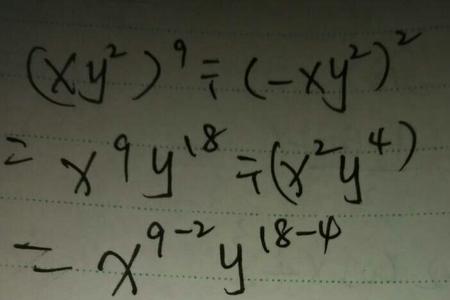 (xy²)⁹÷(-xy²)²
=x⁹y¹⁸÷(x²y⁴)
=x⁹⁻²y¹⁸⁻⁴